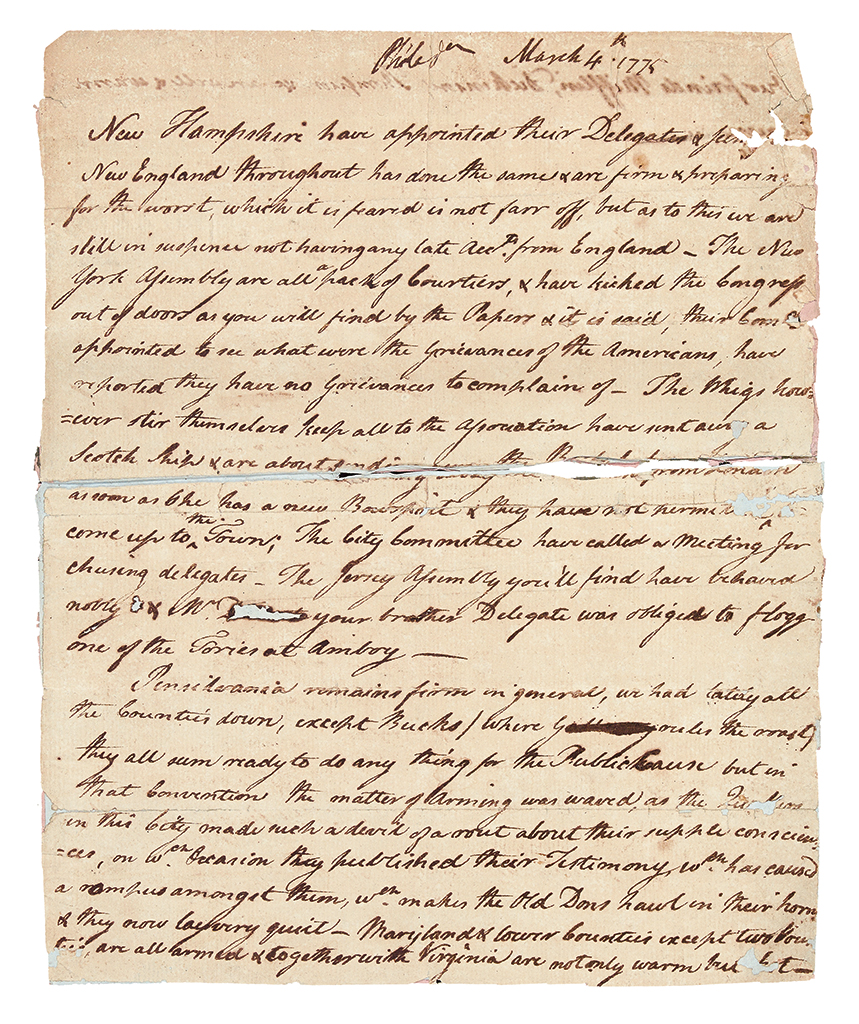 Philada March 4th. 1775
New Hampshire have appointed their Delegates &
New England throughout has done the same & are firm & preparing
for the worst, which it is feared is not farr off, but as to this we are
still in suspence not having any late Accts. from England – The New
York Assembly are all a pack of Courtiers, & have kicked the Congress
out of doors as you will find by the Papers & it is said, their Com
appointed to see what were the Grievances of the Americans, have
reported they have no Grievances to complain of – The Whigs how=
=ever stir themselves keep all to the Association have sent away a
Scotch Ship & are about sending away the from
as soon as she has a new Bowsprit & they have not permit
come up to the Town; The City Committee have called a Meeting for
chusing delegates – The Jersey Assembly you'll find have behaved
nobly & Mr. your brother Delegate was obliged to flogg
one of the Tories at Amboy —
Pensilvania remains firm in general, we had lately all
the Counties down, except Bucks / where rules the roast /
they all seem ready to do any thing for the Public Cause but in
that Convention the matter of Arming was waved, as the
in this City made such a devil of a rout about their supple conscien=
=ces, on wch. Occasion they published their Testimony, wch. has caused
a rumpus amongst them, wch. makes the Old Dons hawl in their horns
& they now lay very quiet – Maryland & lower Counties except two
are all armed & together with Virginia are not only warm but